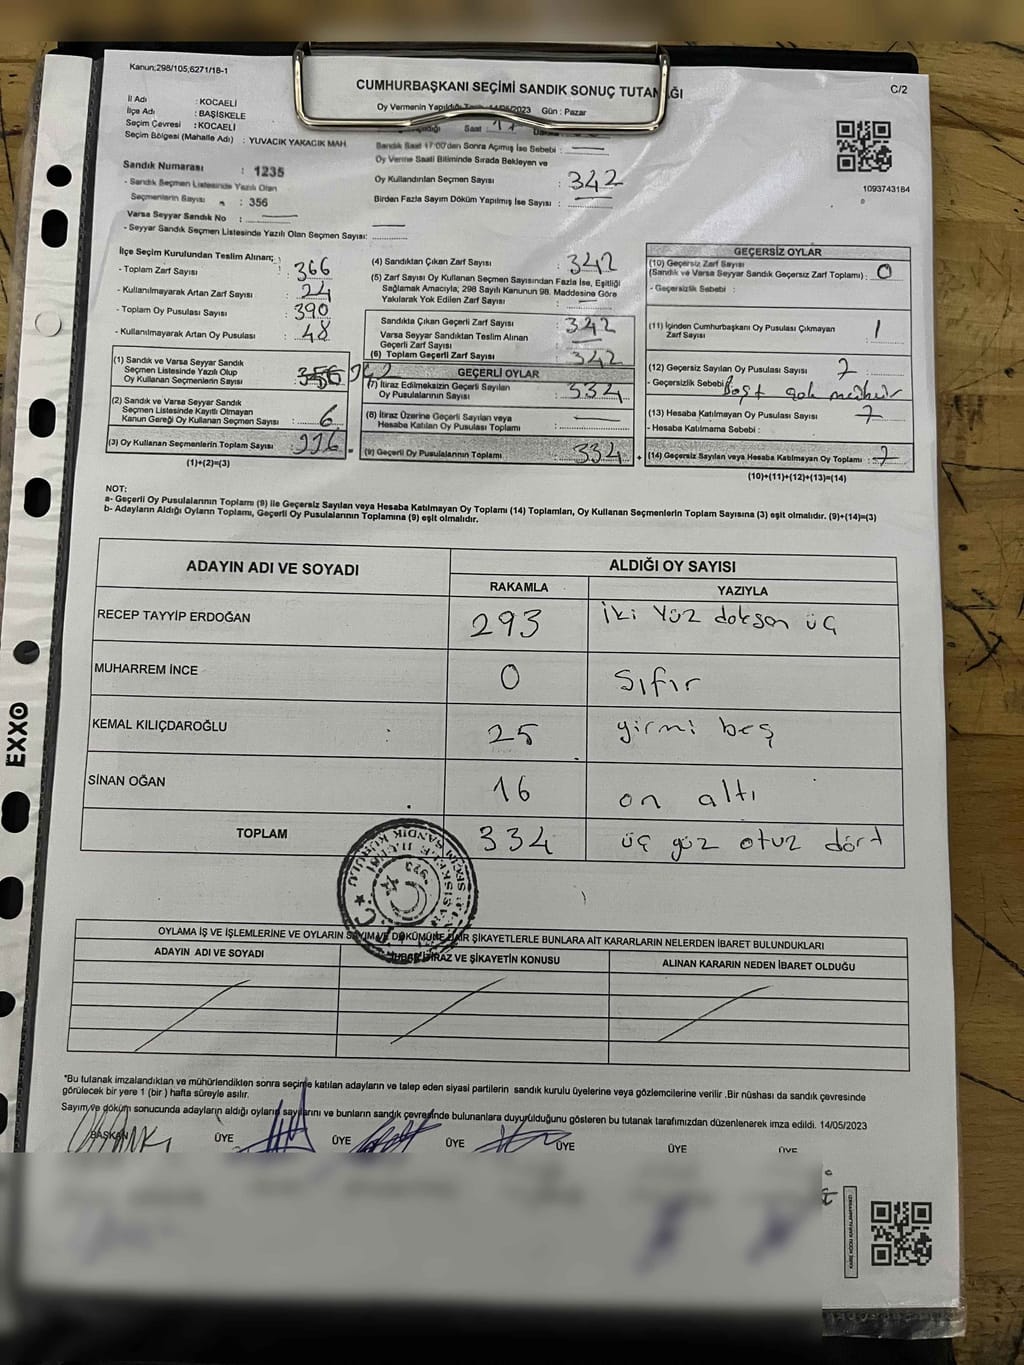 Kanun;298/105,6271/18-1
CUMHURBAŞKANI SEÇİMİ SANDIK SONUÇ TUTANAĞI
C/2
Oy Vermenin Yapıldığı 14/05/2023 Gün : Pazar
İl Adı : KOCAELİ
İlçe Adı : BAŞİSKELE
Seçim Çevresi : KOCAELİ
Seçim Bölgesi (Mahalle Adı) : YUVACIK YAKACIK MAH.
Saat 17
Sandık Saat 17:00'den Sonra Açımış İse Sebebi :
Oy Verme Saati Bitiminde Sırada Bekleyen ve
Oy Kullandırılan Seçmen Sayısı : 342
Birden Fazla Sayım Döküm Yapılmış İse Sayısı :
1093743184
0
Sandık Numarası : 1235
- Sandık Seçmen Listesinde Yazılı Olan
Seçmenlerin Sayısı : 356
Varsa Seyyar Sandık No :
- Seyyar Sandık Seçmen Listesinde Yazılı Olan Seçmen Sayısı:
İlçe Seçim Kurulundan Teslim Alınan;
- Toplam Zarf Sayısı : 366
- Kullanılmayarak Artan Zarf Sayısı : 24
- Toplam Oy Pusulası Sayısı : 390
- Kullanılmayarak Artan Oy Pusulası : 48
(1) Sandık ve Varsa Seyyar Sandık
Seçmen Listesinde Yazılı Olup
Oy Kullanan Seçmenlerin Sayısı :
(2) Sandık ve Varsa Seyyar Sandık
Seçmen Listesinde Kayıtlı Olmayan
Kanun Gereği Oy Kullanan Seçmen Sayısı : 6
(3) Oy Kullanan Seçmenlerin Toplam Sayısı
(1)+(2)=(3)
(4) Sandıktan Çıkan Zarf Sayısı : 342
(5) Zarf Sayısı Oy Kullanan Seçmen Sayısından Fazla İse, Eşitliği
Sağlamak Amacıyla; 298 Sayılı Kanunun 98. Maddesine Göre
Yakılarak Yok Edilen Zarf Sayısı :
Sandıkta Çıkan Geçerli Zarf Sayısı : 342
Varsa Seyyar Sandıktan Teslim Alınan
Geçerli Zarf Sayısı
(6) Toplam Geçerli Zarf Sayısı : 342
GEÇERLİ OYLAR
(7) İtiraz Edilmeksizin Geçerli Sayılan
Oy Pusulalarının Sayısı : 334
(8) İtiraz Üzerine Geçerli Sayılan veya
Hesaba Katılan Oy Pusulası Toplamı :
(9) Geçerli Oy Pusulalarının Toplamı : 334
GEÇERSİZ OYLAR
(10) Geçersiz Zarf Sayısı
(Sandık ve Varsa Seyyar Sandık Geçersiz Zarf Toplamı) : 0
- Geçersizlik Sebebi :
(11) İçinden Cumhurbaşkanı Oy Pusulası Çıkmayan
Zarf Sayısı : 1
(12) Geçersiz Sayılan Oy Pusulası Sayısı : 7
- Geçersizlik Sebebi :
(13) Hesaba Katılmayan Oy Pusulası Sayısı : 7
- Hesaba Katılmama Sebebi :
(14) Geçersiz Sayılan veya Hesaba Katılmayan Oy Toplamı : 7
(10)+(11)+(12)+(13)=(14)
NOT:
a- Geçerli Oy Pusulalarının Toplamı (9) ile Geçersiz Sayılan veya Hesaba Katılmayan Oy Toplamı (14) Toplamları, Oy Kullanan Seçmenlerin Toplam Sayısına (3) eşit olmalıdır. (9)+(14)=(3)
b- Adayların Aldığı Oyların Toplamı, Geçerli Oy Pusulalarının Toplamına (9) eşit olmalıdır.
ADAYIN ADI VE SOYADI
ALDIĞI OY SAYISI
RAKAMLA YAZIYLA
RECEP TAYYİP ERDOĞAN 293 iki yüz doksan üç
MUHARREM İNCE 0 sıfır
KEMAL KILIÇDAROĞLU 25 yirmi beş
SİNAN OĞAN 16 on altı
TOPLAM 334 üç yüz otuz dört
OYLAMA İŞ VE İŞLEMLERİNE VE OYLARIN SAYIM VE DÖKÜMÜNE DAİR ŞİKAYETLERLE BUNLARA AİT KARARLARIN NELERDEN İBARET BULUNDUKLARI
ADAYIN ADI VE SOYADI
İTİRAZ VE ŞİKAYETİN KONUSU
ALINAN KARARIN NEDEN İBARET OLDUĞU
*Bu tutanak imzalandıktan ve mühürlendikten sonra seçime katılan adayların ve talep eden siyasi partilerin sandık kurulu üyelerine veya gözlemcilerine verilir.Bir nüshası da sandık çevresinde
görülecek bir yere 1 (bir) hafta süreyle asılır.
Sayım ve döküm sonucunda adayların aldığı oyların sayılarını ve bunların sandık çevresinde bulunanlara duyurulduğunu gösteren bu tutanak tarafımızdan düzenlenerek imza edildi. 14/05/2023
BAŞKAN ÜYE ÜYE ÜYE ÜYE ÜYE ÜYE
EXXO